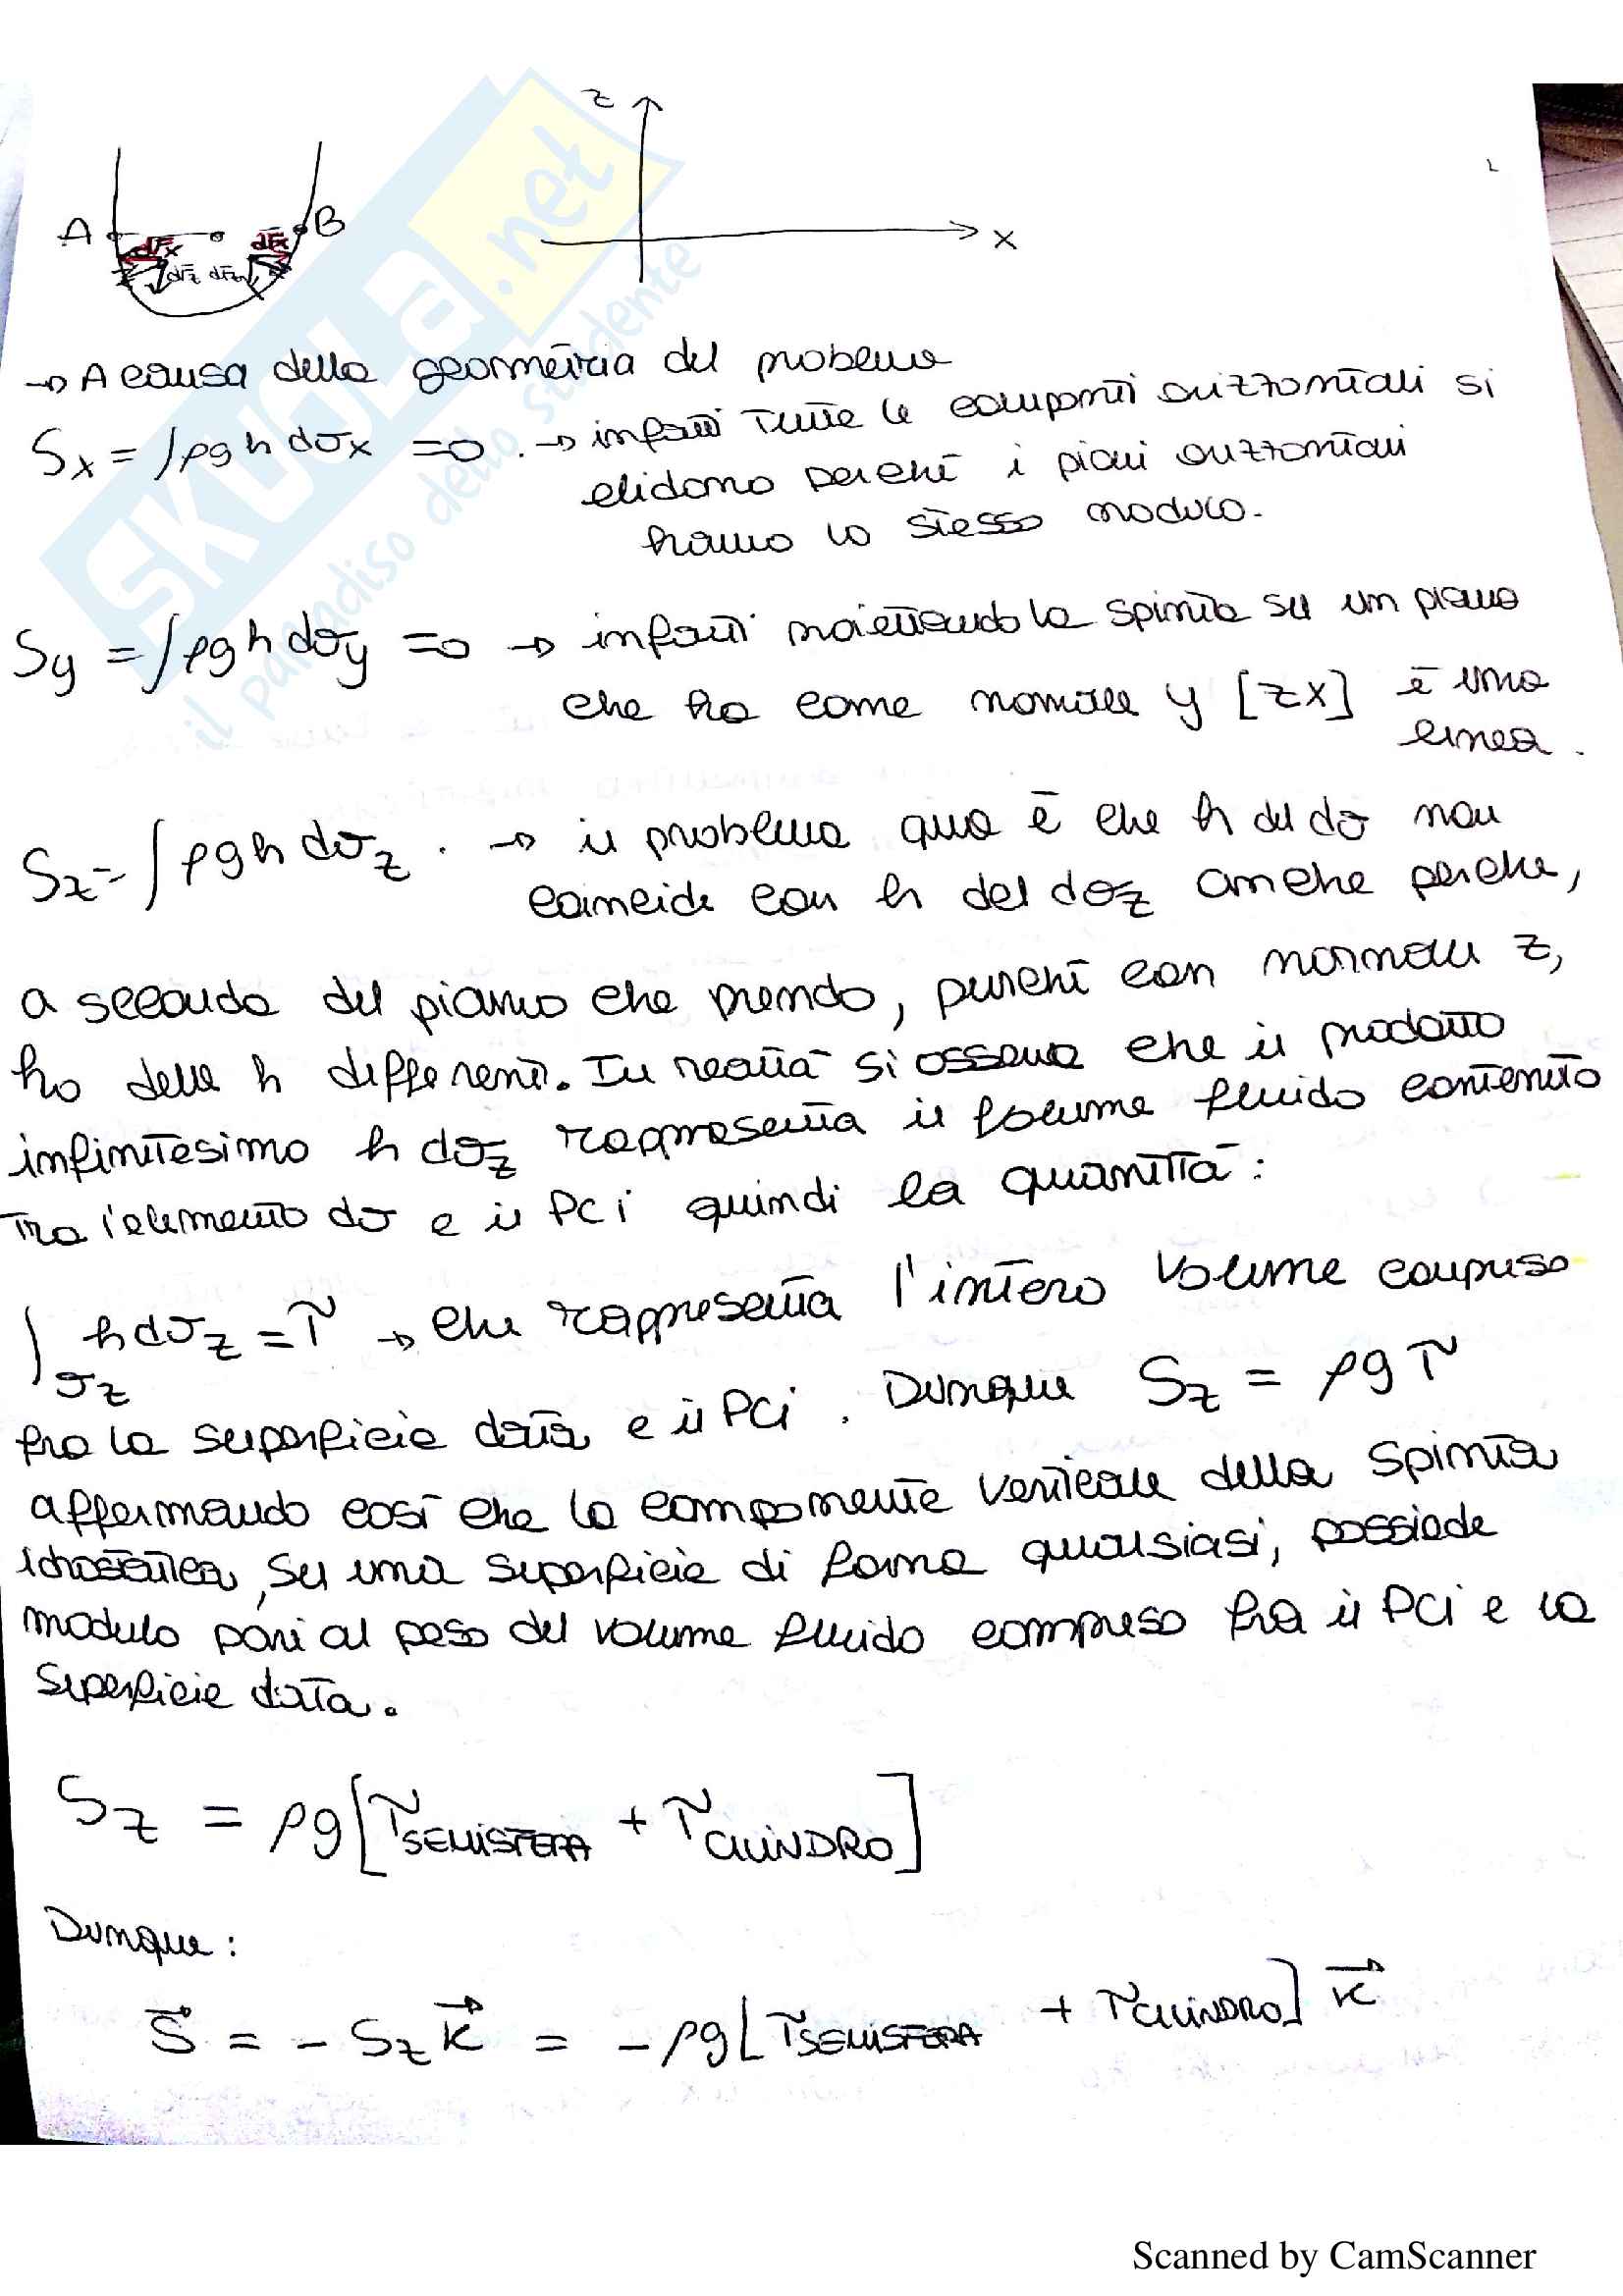 z
x
A
B
dFx
dFx
dFz
dFz
→ A causa della geometria del problema
Sx = ∫ρgh dσx = 0 . → infatti tutte le componti orizzontali si
elidono perchē i piani orizzontali
hanno lo stesso modulo.
Sy = ∫ρgh dσy = 0 → infatti proiettando la spinta su un piano
che ha come normale y [zx] ē una
linea .
Sz = ∫ρgh dσz . → il problema qua ē che h del dσ non
coincide con h del dσz anche perche,
a seconda del piano che prendo, purchē con normale z,
ho delle h differenti. In realtà si osserva che il prodotto
infinitesimo h dσz rappresenta il volume fluido contenuto
tra l'elemento dσ e il PCi quindi la quantità :
∫σz h dσz = τ → che rappresenta l'intero volume compreso
fra la superficie data e il PCi . Dunque Sz = ρg τ
affermando così che la componente verticale della spinta
idrostatica, su una superficie di forma qualsiasi, possiede
modulo pari al peso del volume fluido compreso fra il PCi e la
superficie data.
Sz = ρg[τSEMISFERA + τCILINDRO]
Dunque :
S⃗ = - Sz k⃗ = - ρg[τSEMISFERA + τCILINDRO] k⃗
SKUOLA.net
il paradiso dello studente
Scanned by CamScanner